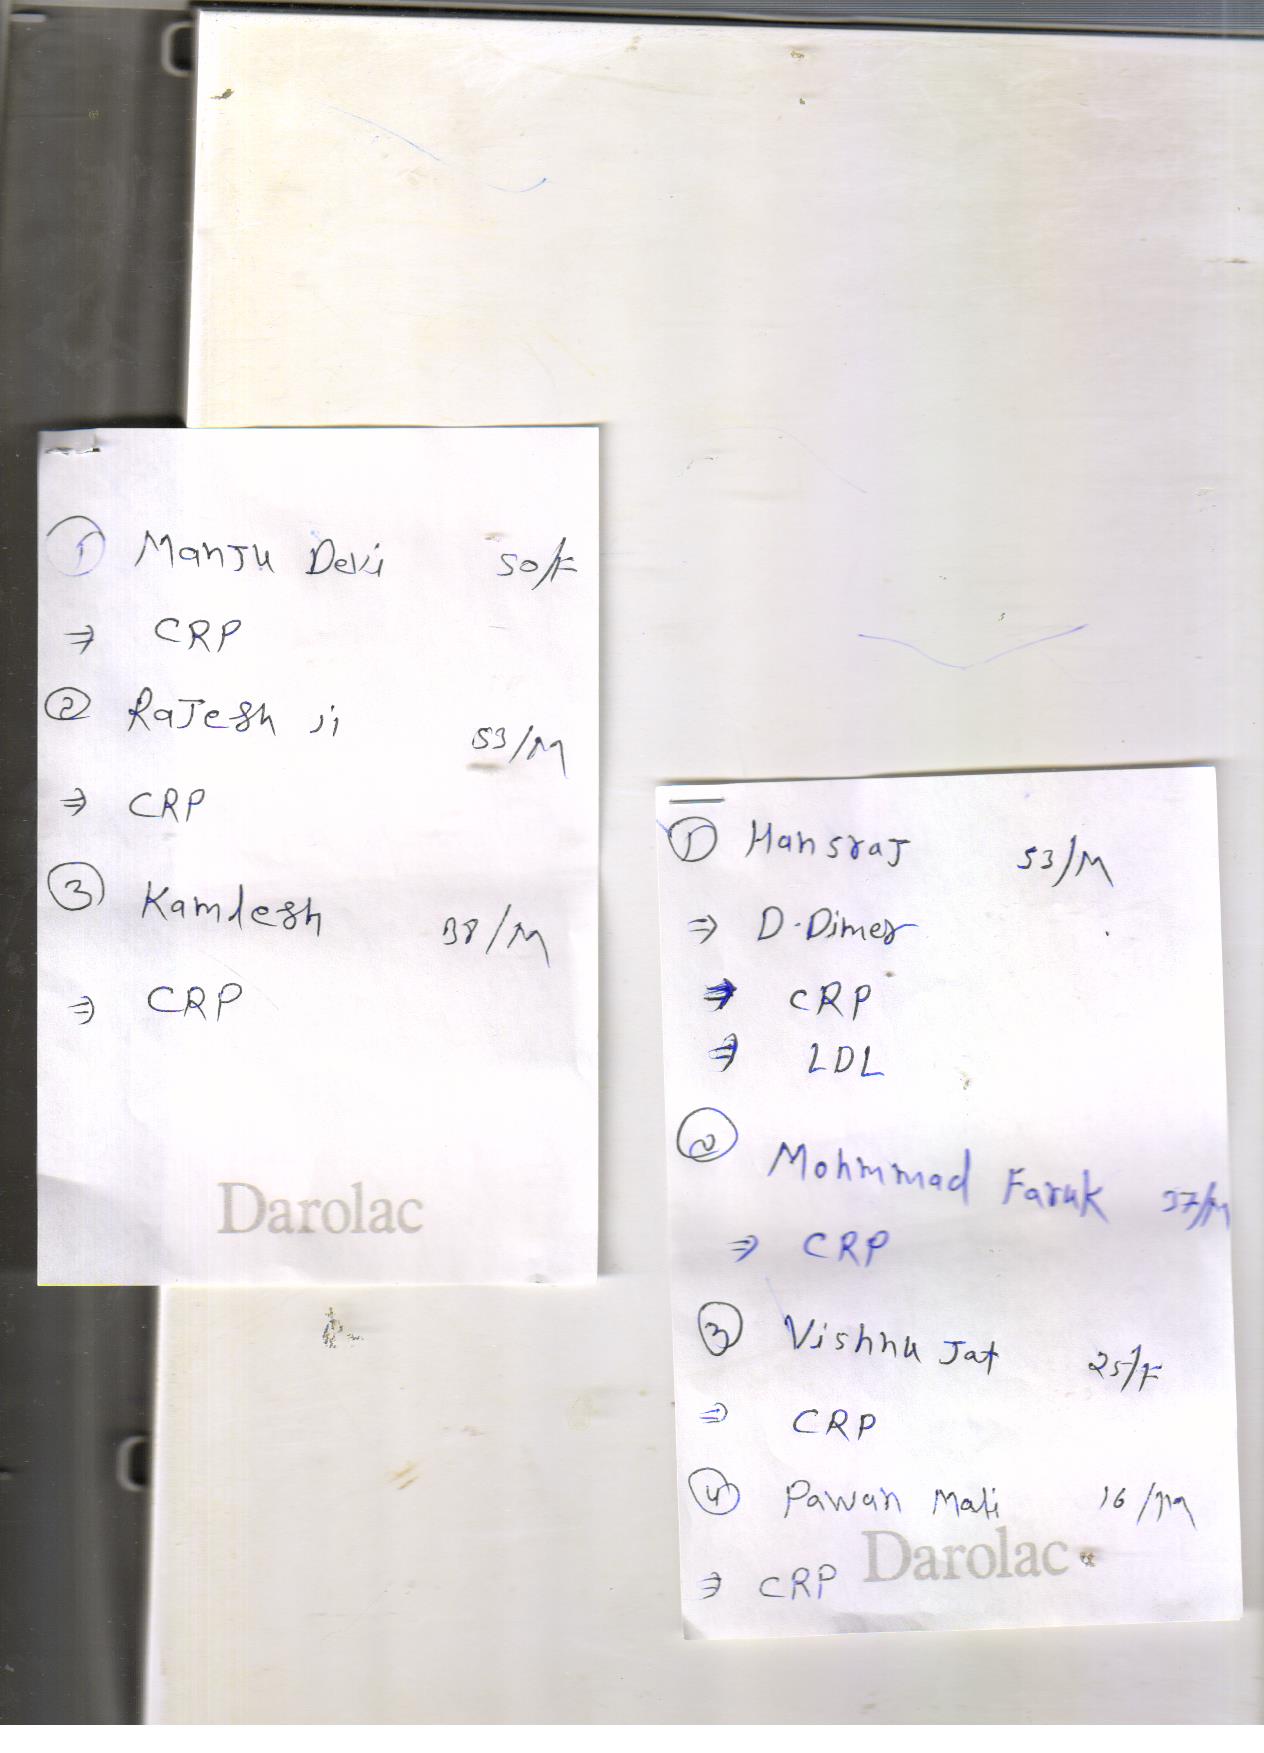 ① Manju Devi 50/F
⇒ CRP
② Rajesh Ji 53/M
⇒ CRP
③ Kamlesh 38/M
⇒ CRP
Darolac
① Hansraj 53/M
⇒ D-Dimer
⇒ CRP
⇒ LDL
② Mohmmad Faruk 37/M
⇒ CRP
③ Vishnu Jat 25/F
⇒ CRP
④ Pawan Mali 16/M
Darolac
⇒ CRP